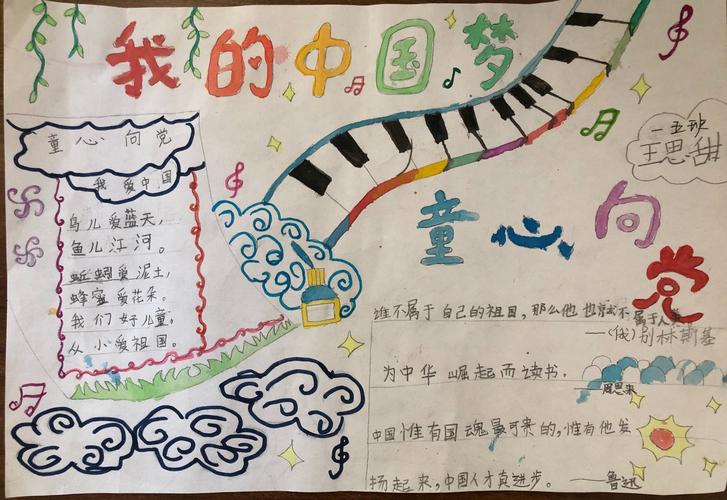 我的中国梦
一五班
王思甜
童心向党
我爱中国
鸟儿爱蓝天，
鱼儿江河。
蚯蚓爱泥土，
蜂蜜爱花朵。
我们好儿童，
从小爱祖国。
童心向党
谁不属于自己的祖国，那么他也就不属于人类
——(俄)别林斯基
为中华崛起而读书。
——周恩来
中国惟有国魂最可贵的，惟有他发
扬起来，中国人才真进步。——鲁迅